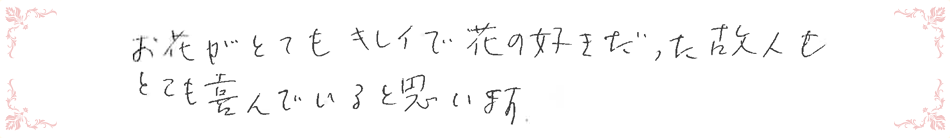 お花がとてもキレイで花の好きだった故人も
とても喜んでいると思います。